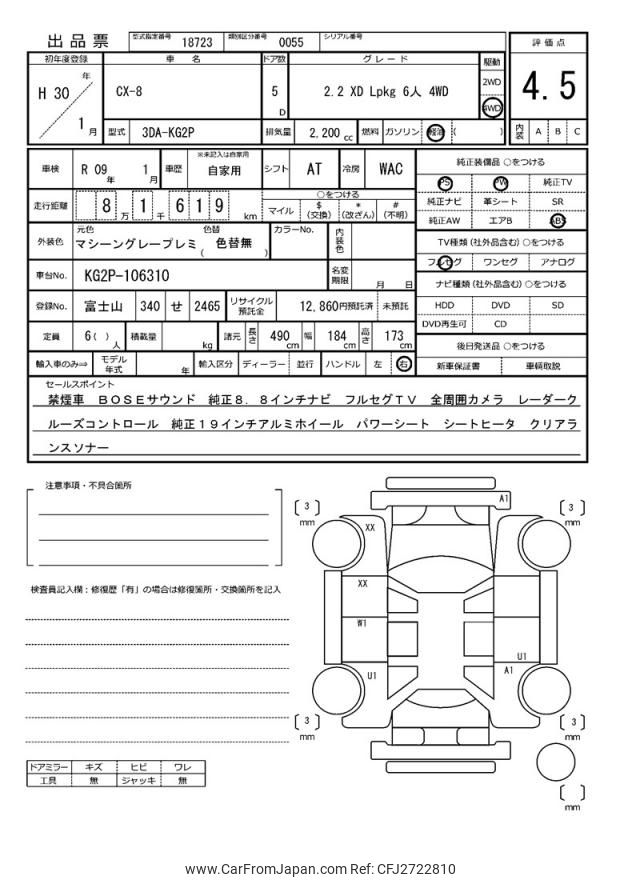 出品票 型式指定番号 18723 類別区分番号 0055 シリアル番号
初年度登録 車名 ドア数 グレード 駆動 評価点
H 30 年 1 月 CX-8 5 D 2.2 XD Lpkg 6人 4WD 2WD 4WD 4.5
型式 3DA-KG2P 排気量 2,200 cc 燃料 ガソリン 軽油 ( ) 内装 A B C
車検 R 09 年 1 月 車歴 ※未記入は自家用 自家用 シフト AT 冷房 WAC 純正装備品 ○をつける
PS PW 純正TV
走行距離 8 万 1 千 6 1 9 km ○をつける 純正ナビ 革シート SR
マイル $ (交換) * (改ざん) # (不明) 純正AW エアB ABS
外装色 元色 マシーングレープレミ 色替 ( 色替無 ) カラーNo. 内装色 TV種類 (社外品含む) ○をつける
フルセグ ワンセグ アナログ
車台No. KG2P-106310 名変期限 月 日 ナビ種類 (社外品含む) ○をつける
登録No. 富士山 340 せ 2465 リサイクル預託金 12,860円預託済 未預託 HDD DVD SD
DVD再生可 CD
定員 6( ) 人 積載量 kg 諸元 長さ 490 cm 幅 184 cm 高さ 173 cm 後日発送品 ○をつける
輸入車のみ⇒ モデル年式 年 輸入区分 ディーラー 並行 ハンドル 左 右 新車保証書 車輌取説
セールスポイント
禁煙車 BOSEサウンド 純正8.8インチナビ フルセグTV 全周囲カメラ レーダーク
ルーズコントロール 純正19インチアルミホイール パワーシート シートヒータ クリアラ
ンスソナー
注意事項・不具合箇所
検査員記入欄：修復歴「有」の場合は修復箇所・交換箇所を記入
ドアミラー キズ ヒビ ワレ
工具 無 ジャッキ 無
A1
3 mm 3 mm
XX
XX
W1
U1
U1 A1
3 mm 3 mm
mm
www.CarFromJapan.com Ref: CFJ2722810